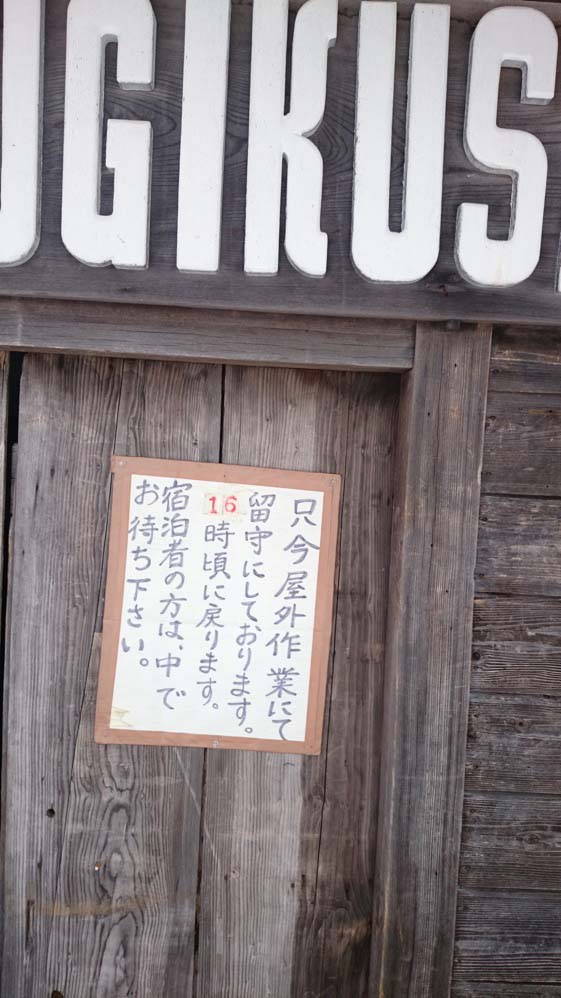 UGIKUS
只今屋外作業にて
留守にしております。
16時頃に戻ります。
宿泊者の方は、中で
お待ち下さい。